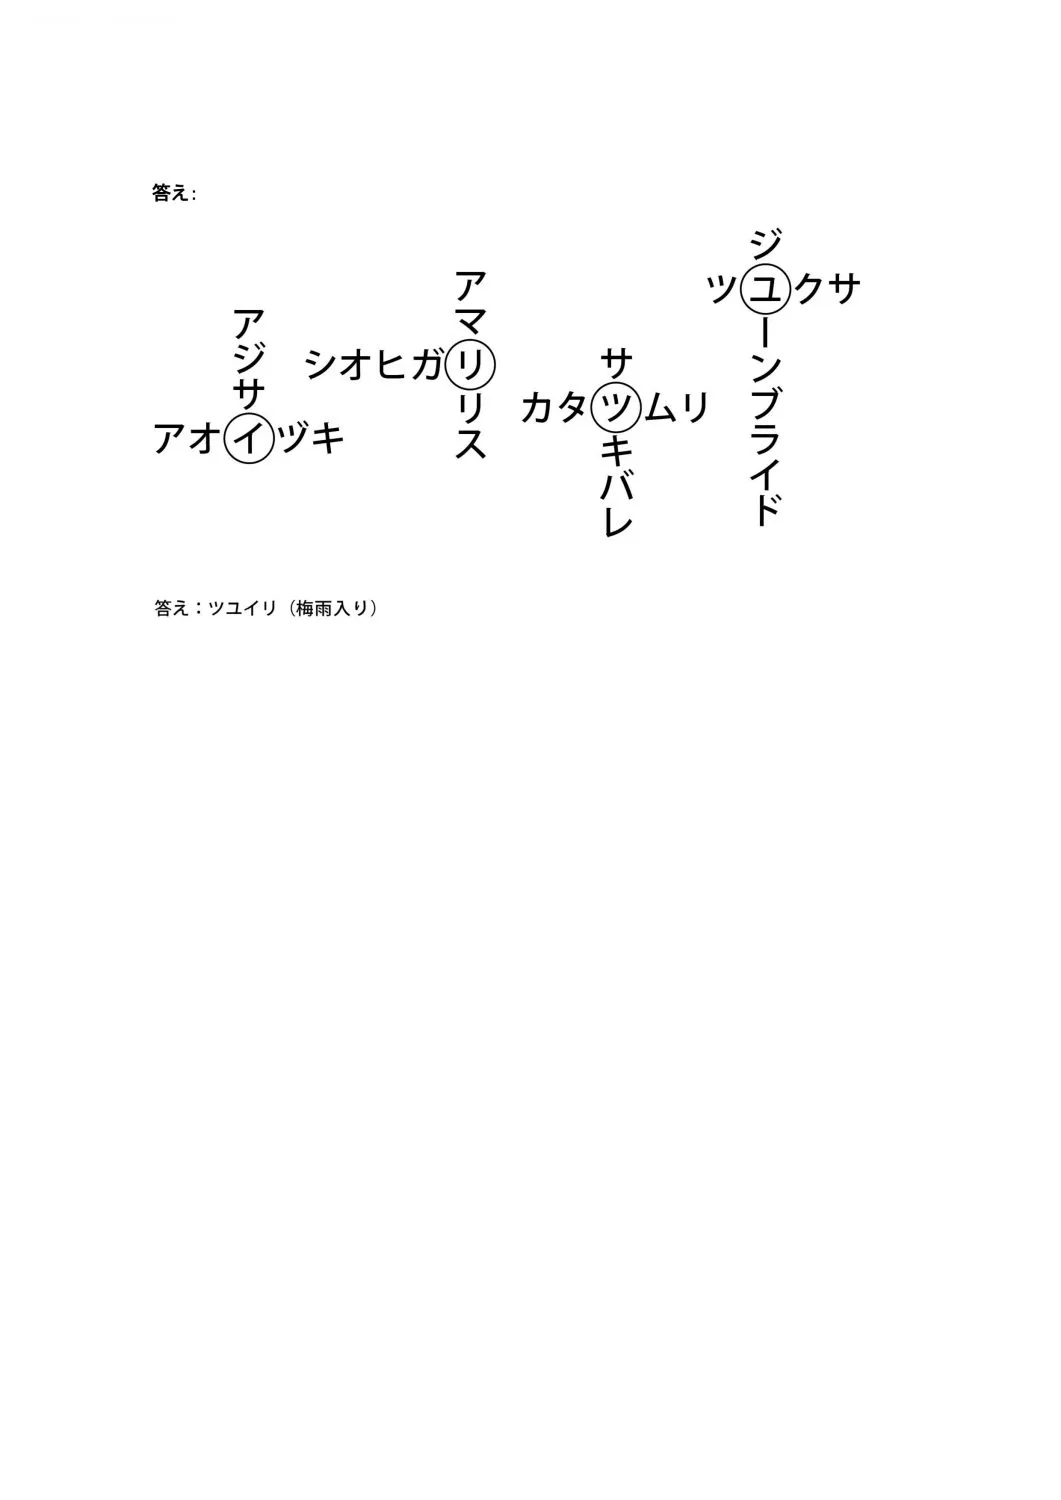 答え:
アジサイ
アオイヅキ
アマリリス
シオヒガリ
サツキバレ
カタツムリ
ジユーンブライド
ツユクサ
答え：ツユイリ（梅雨入り）